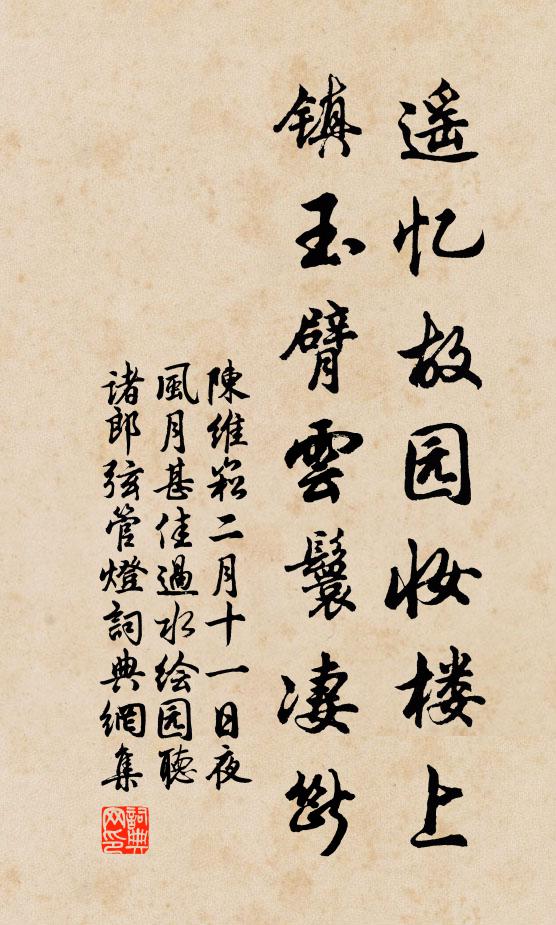 遥忆故园妆楼上
镇玉臂雲鬟凄断
陳維崧二月十一日夜
風月甚佳過水绘园聽
诸郎弦管燈詞典網集
詞典
网印